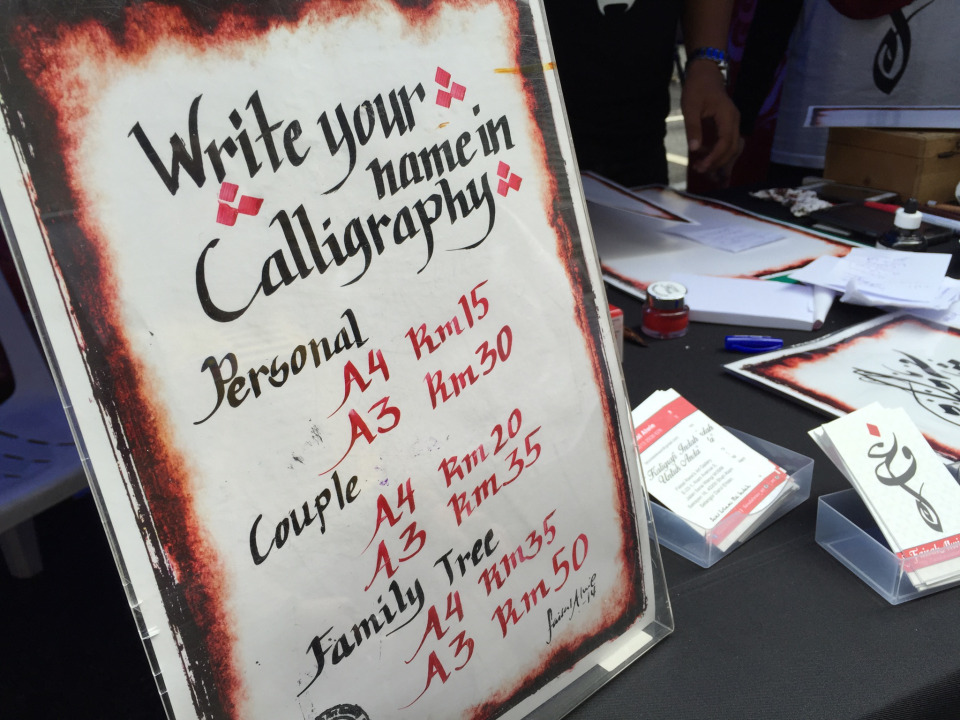 Write your
name in
Calligraphy
Personal
A4 Rm15
A3 Rm30
Couple
A4 Rm20
A3 Rm35
Family Tree
A4 Rm35
A3 Rm50
Kaligrafi Indah
Untuk Anda